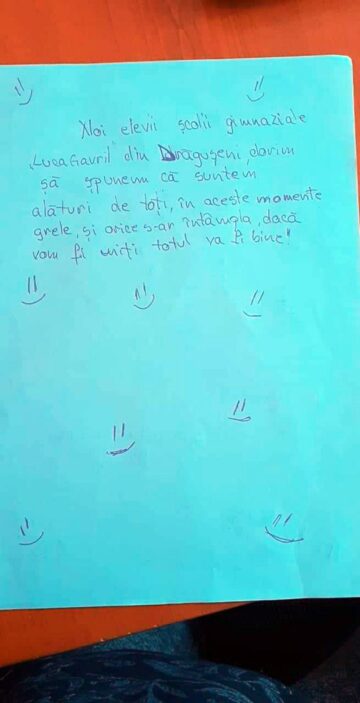 Noi elevii școlii gimnaziale
"Luca Gavril" din Drăgușeni, dorim
să spunem că suntem
alături de toți, în aceste momente
grele, și orice s-ar întâmpla, dacă
vom fi uniți totul va fi bine!